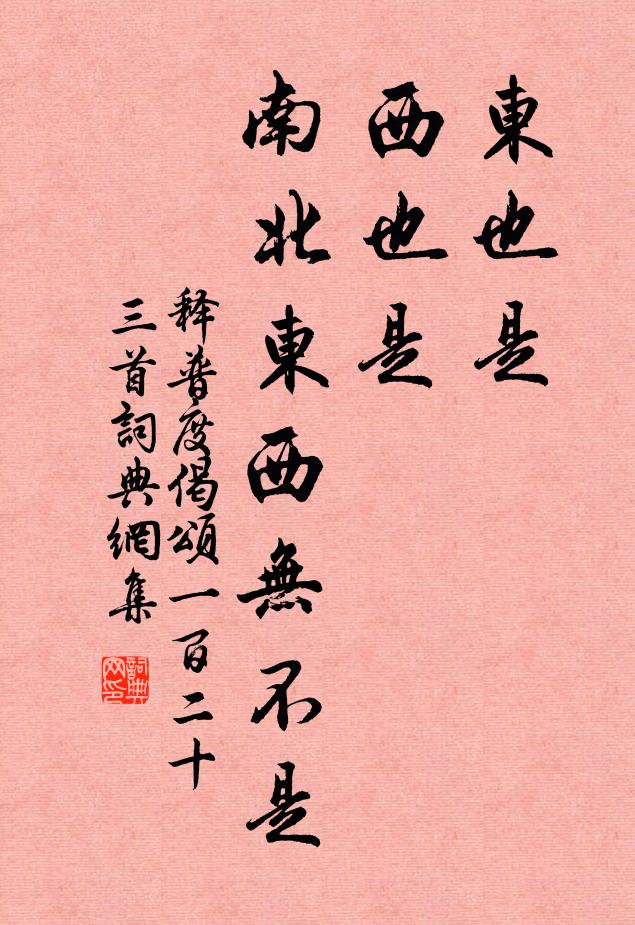 東也是
西也是
南北東西無不是
释普度偈頌一百二十
三首詞典網集
詞典
网印